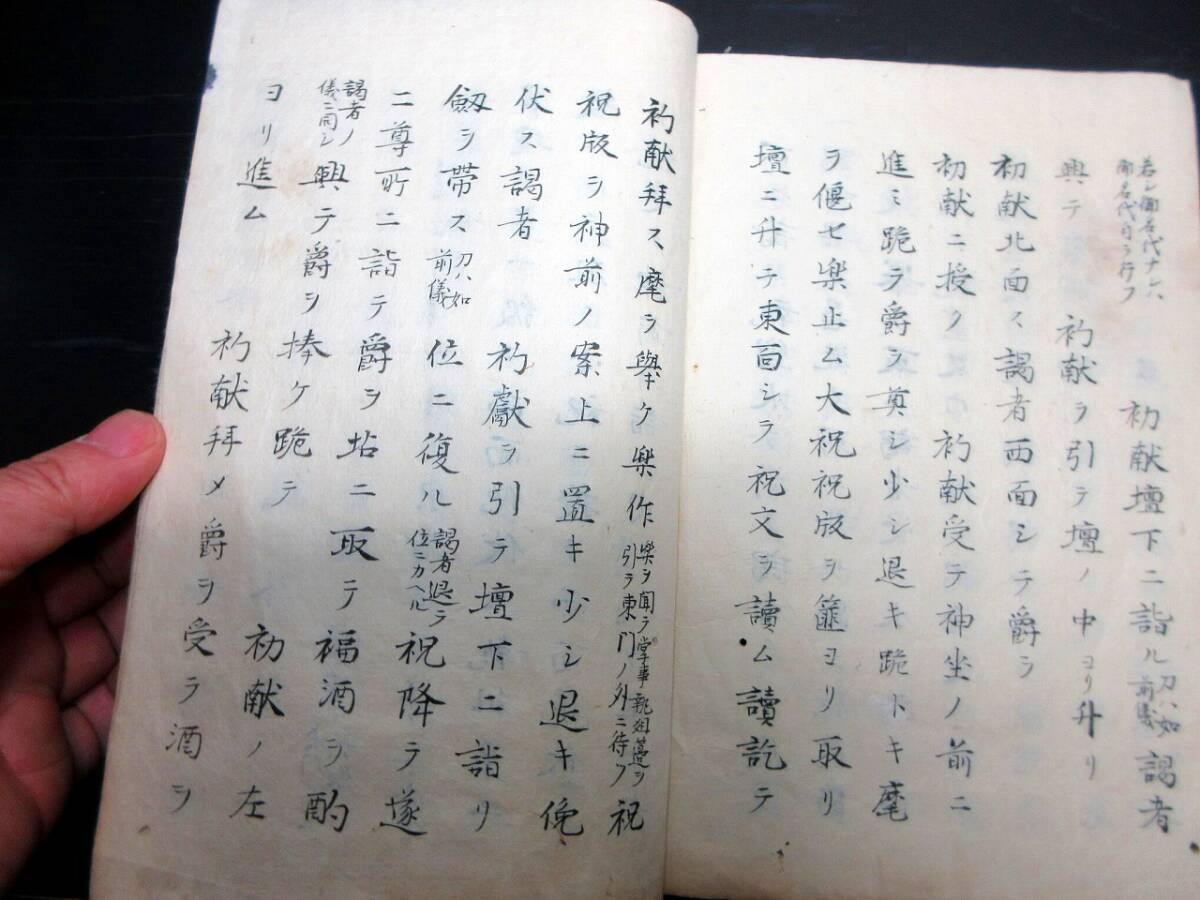 若シ國名代ナレハ
國名代自ラ行フ
初献壇下ニ詣ル刀ハ如前儀謁者
興テ 初献ヲ引テ壇ノ中ヨリ升リ
初献北面ス謁者西面シテ爵ヲ
初献ニ授ク 初献受テ神坐ノ前ニ
進ミ跪テ爵ヲ奠シ少シ退キ跪トキ麾
ヲ偃セ楽止ム大祝祝版ヲ篚ヨリ取リ
壇ニ升テ東面シテ祝文ヲ讀ム讀訖テ
初献拝ス麾ヲ擧ケ楽作楽ヲ聞テ掌事執俎簋ヲ引テ東門ノ外ニ待フ祝
祝版ヲ神前ノ案上ニ置キ少シ退キ俛
伏ス謁者 初獻ヲ引テ壇下ニ詣リ
劔ヲ帯ス刀ハ如前儀位ニ復ル謁者退テ位ニカヘル祝降テ遂
ニ尊所ニ詣テ爵ヲ坫ニ取テ福酒ヲ酌
謁者ノ儀ニ同シ興テ爵ヲ捧ケ跪テ 初献ノ左
ヨリ進ム 初献拝メ爵ヲ受テ酒ヲ